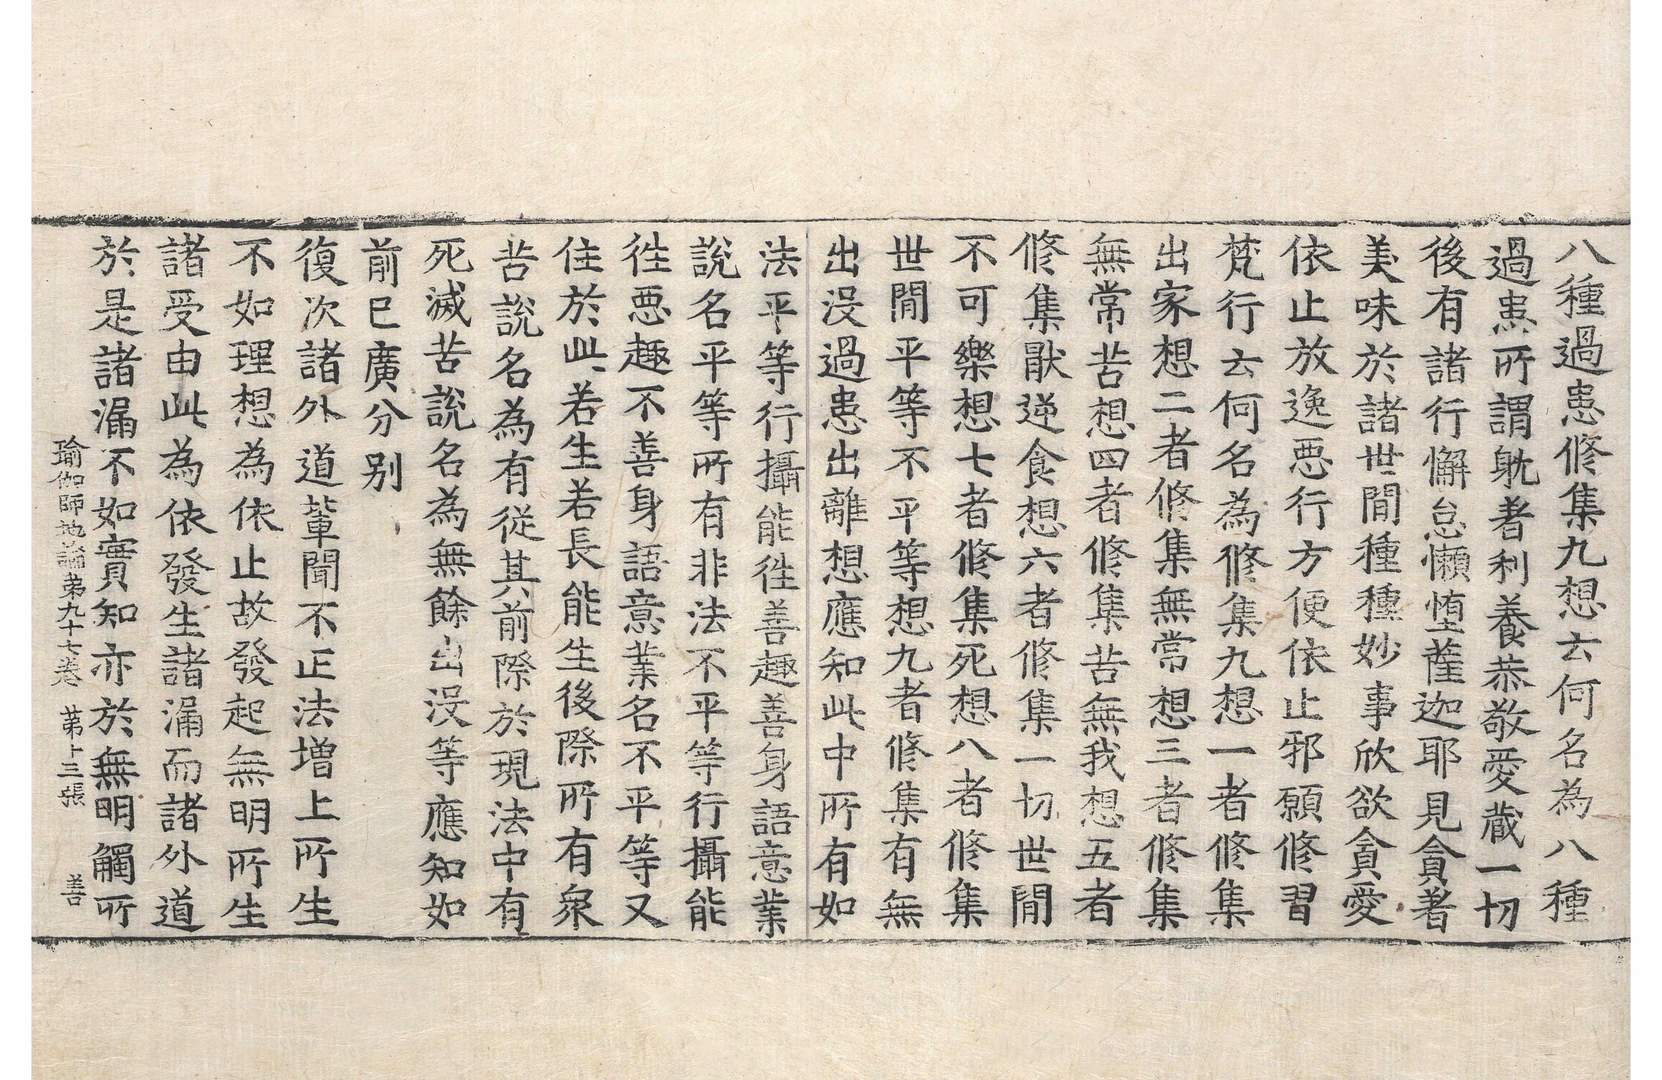 八種過患修集九想云何名為八種
過患所謂躭著利養恭敬愛藏一切
後有諸行懈怠懶惰薩迦耶見貪著
美味於諸世間種種妙事欣欲貪愛
依止放逸惡行方便依止邪願修習
梵行云何名為修集九想一者修集
出家想二者修集無常想三者修集
無常苦想四者修集苦無我想五者
修集猒逆食想六者修集一切世間
不可樂想七者修集死想八者修集
世間平等不平等想九者修集有無
出沒過患出離想應知此中所有如
法平等行攝能徃善趣善身語意業
說名平等所有非法不平等行攝能
徃惡趣不善身語意業名不平等又
住於此若生若長能生後際所有衆
苦說名為有從其前際於現法中有
死滅苦說名為無餘出沒等應知如
前已廣分別
復次諸外道輩聞不正法增上所生
不如理想為依止故發起無明所生
諸受由此為依發生諸漏而諸外道
於是諸漏不如實知亦於無明觸所
瑜伽師地論弟九十七卷 第十三張 善